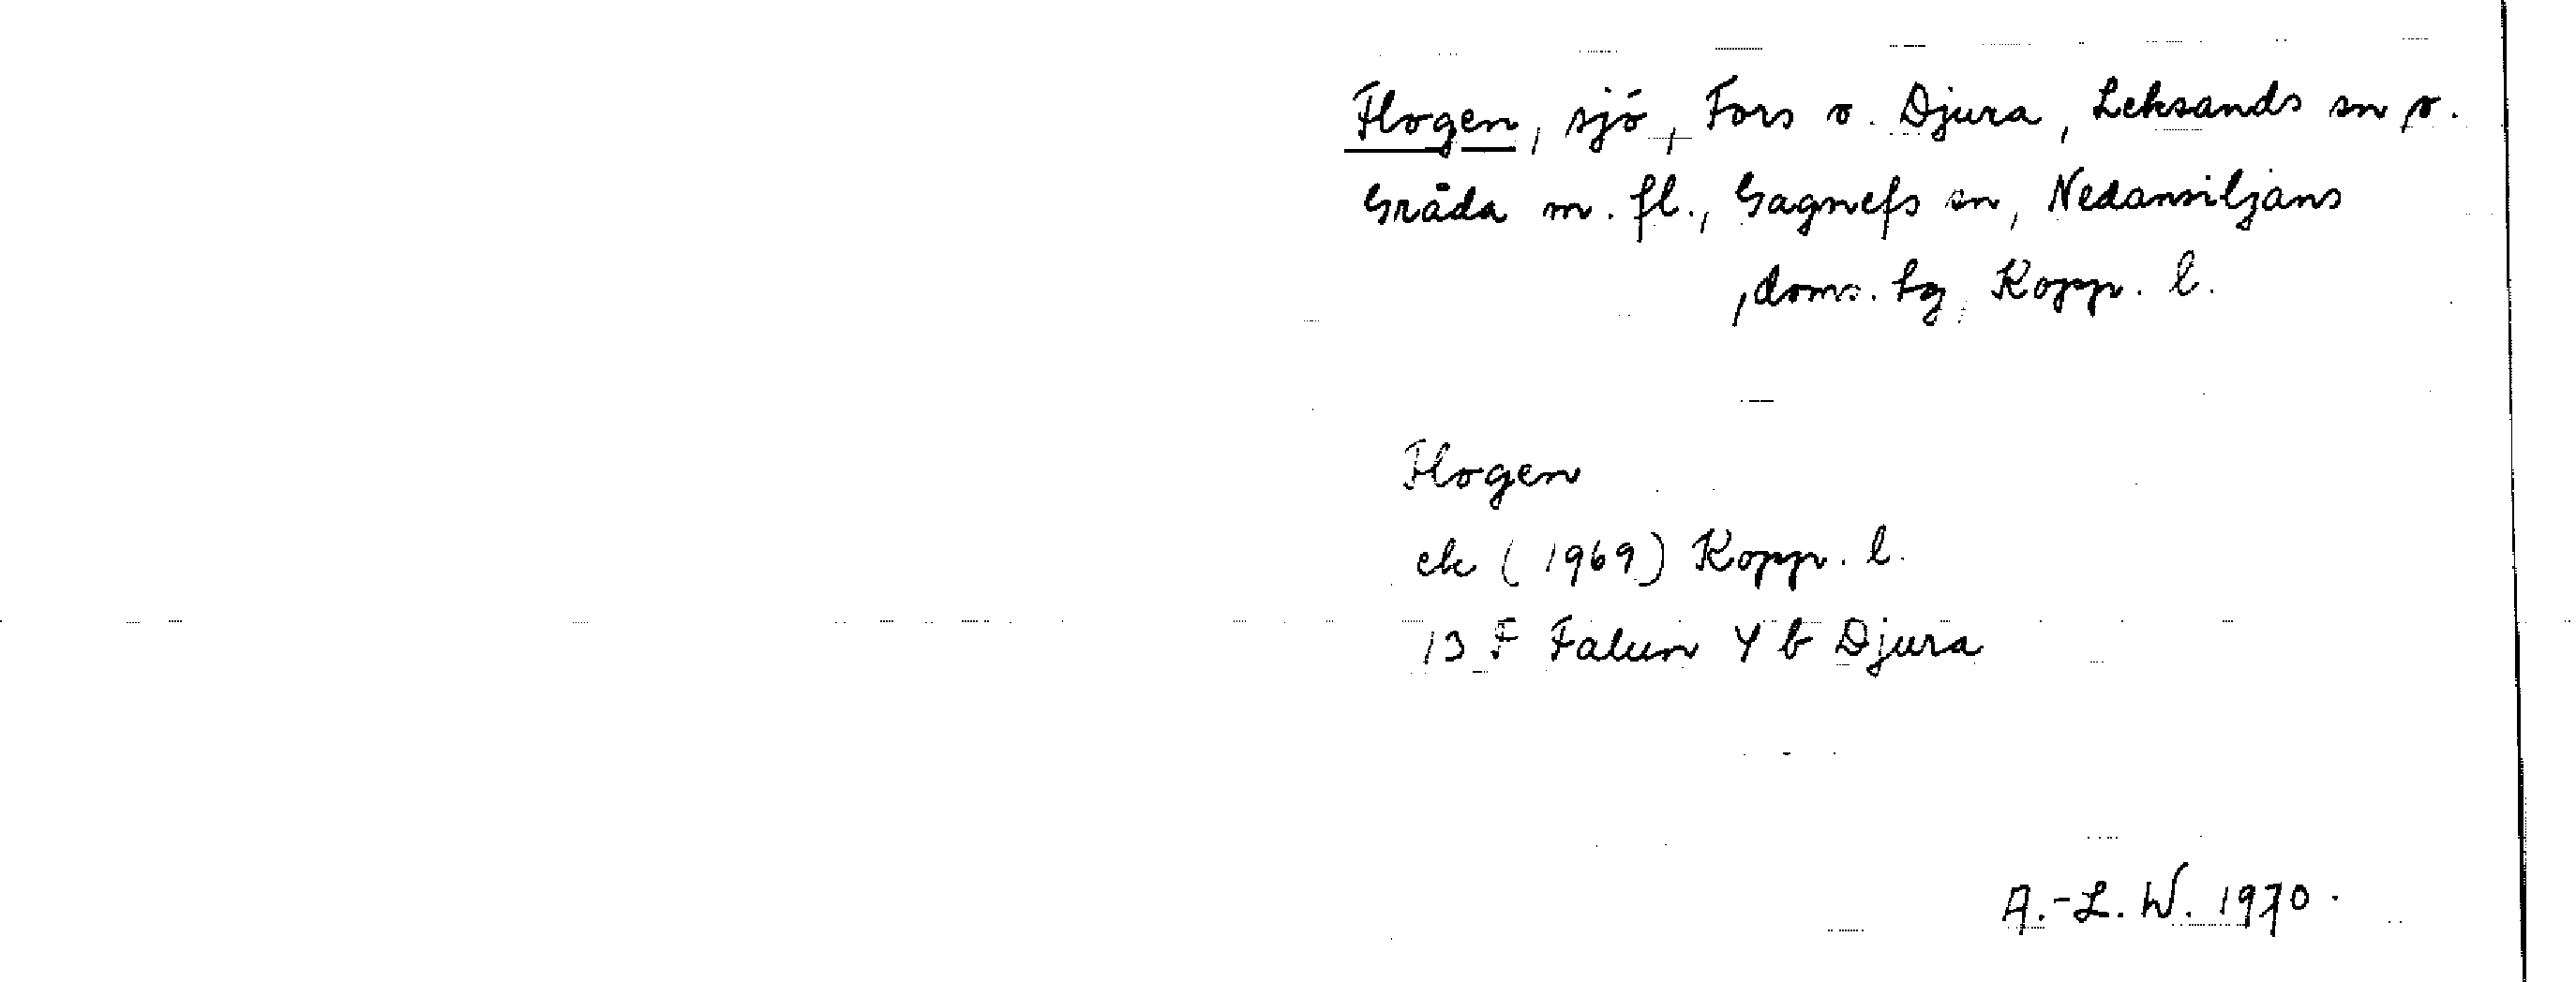 Flogen, sjö, Fors o. Djura, Leksands sn o.
Gråda m. fl., Gagnefs sn, Nedansiljans
doms. tg, Kopp. l.
Flogen
ek (1969) Kopp. l.
13 F Falun 4 b Djura
A.-L. W. 1970.